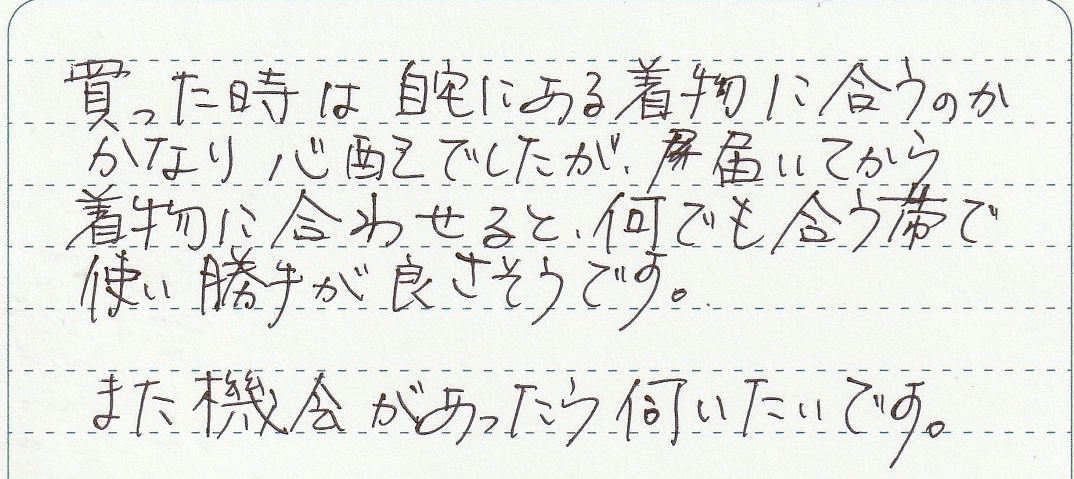 買った時は自宅にある着物に合うのか
かなり心配でしたが、届いてから
着物に合わせると、何でも合う帯で
使い勝手が良さそうです。
また機会があったら伺いたいです。